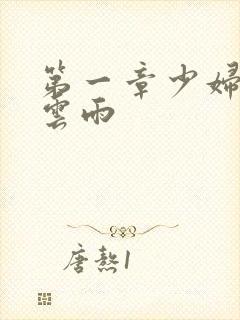 第一章少婦
雲雨
唐熬1